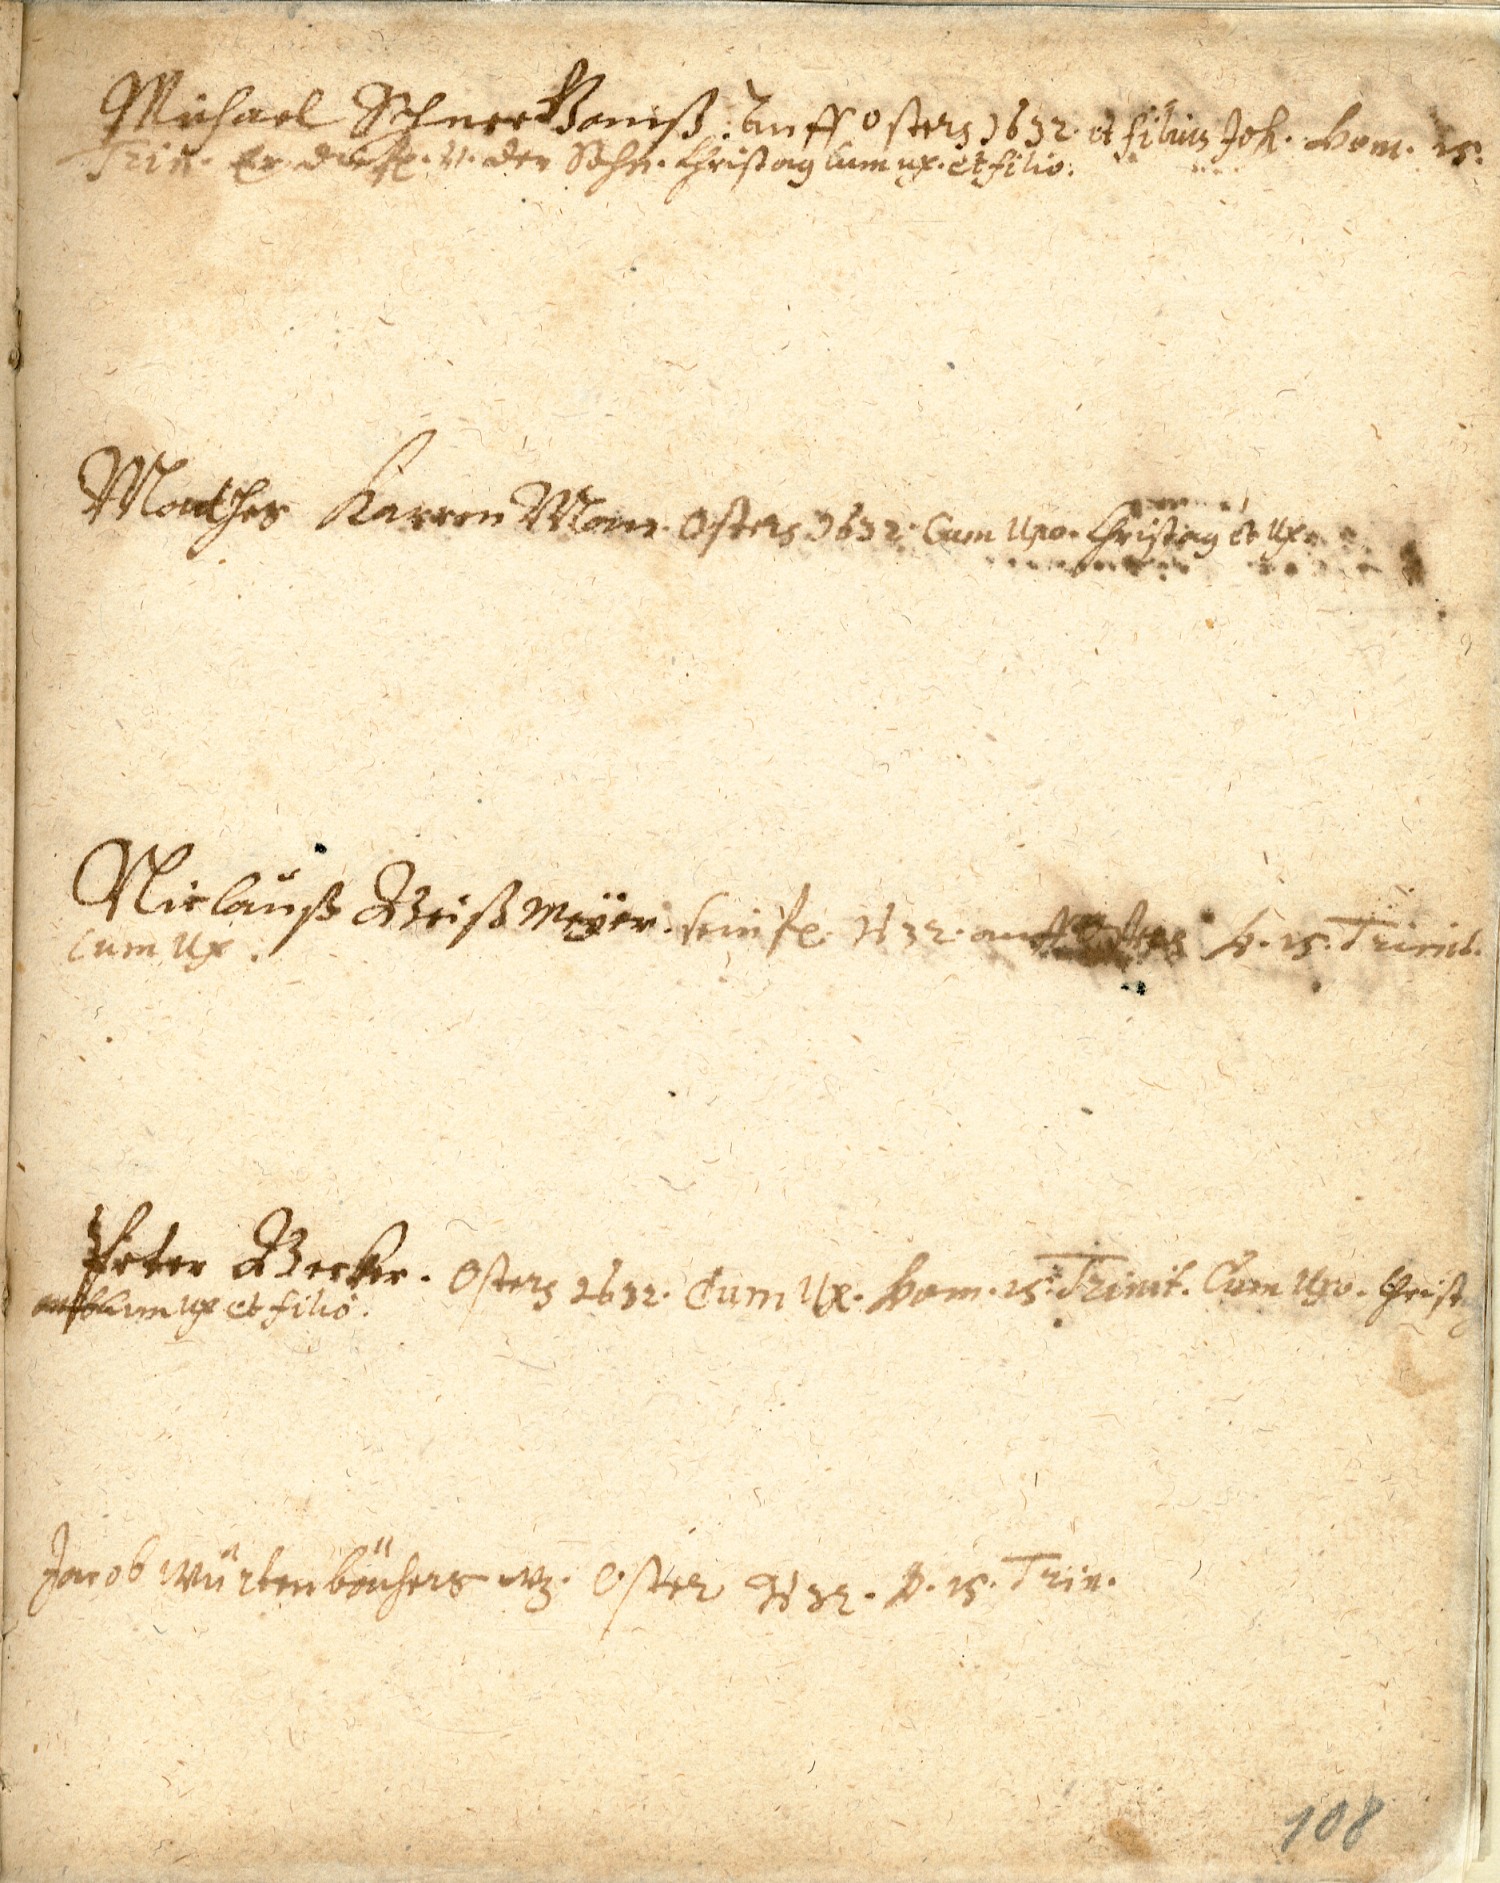 Michael Schneeganß. auff Osters 1632. et filius Joh. Dom. 15.
Trin. Er v. der Sohn. Christag cum ux. et filio.
Mathes Karren Man. Osters 1632. Cum Uxo. Christag et Ux.
Niclauß Weißmeÿer. sein 1632. auff Osters D. 15. Trinit.
Cum Ux.
Peter Becker. Osters 1632. Cum Ux. Dom. 15. Trinit. Cum Uxo. Christ
cum ux et filio.
Jacob Würtenbächers Oster 1632. D. 15. Trin.
108